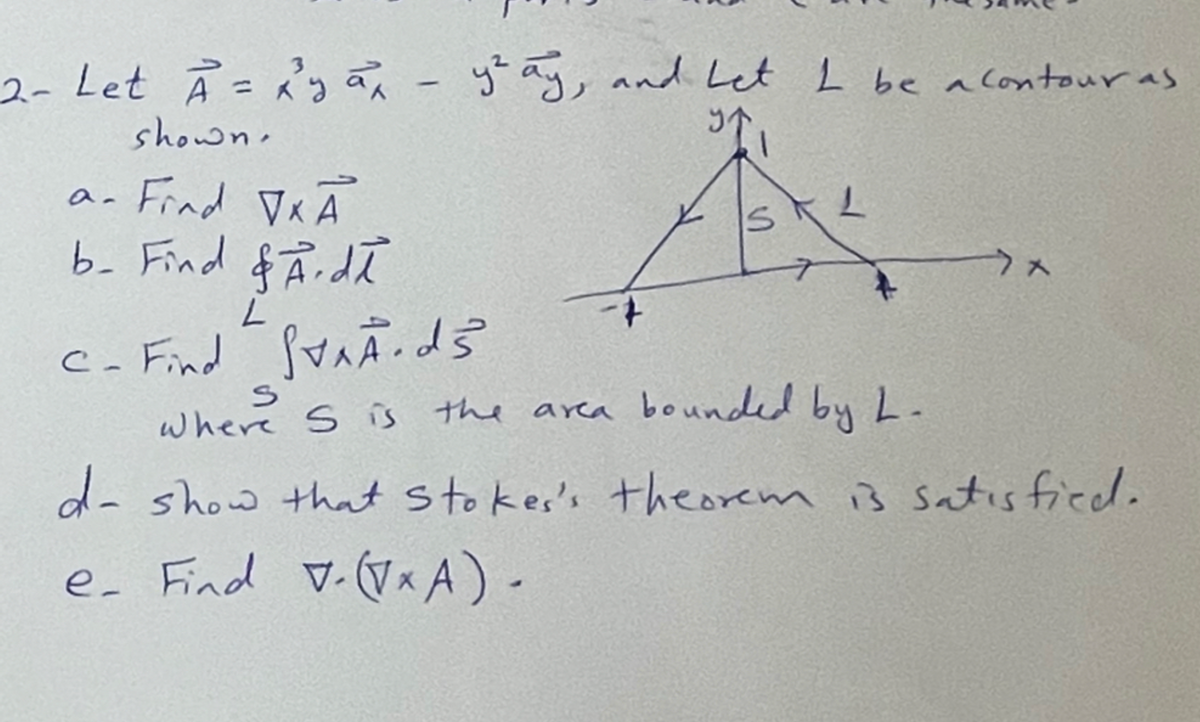 2- Let A⃗ = x³y a⃗ₓ - y² a⃗y, and Let L be a contour as
shown.
y
1
a- Find ∇×A⃗
S
L
b- Find ∮A⃗.dl⃗
L
x
-1
1
c- Find ∫∇×A⃗.ds⃗
S
where S is the area bounded by L.
d- show that Stokes's theorem is satisfied.
e- Find ∇.(∇×A).